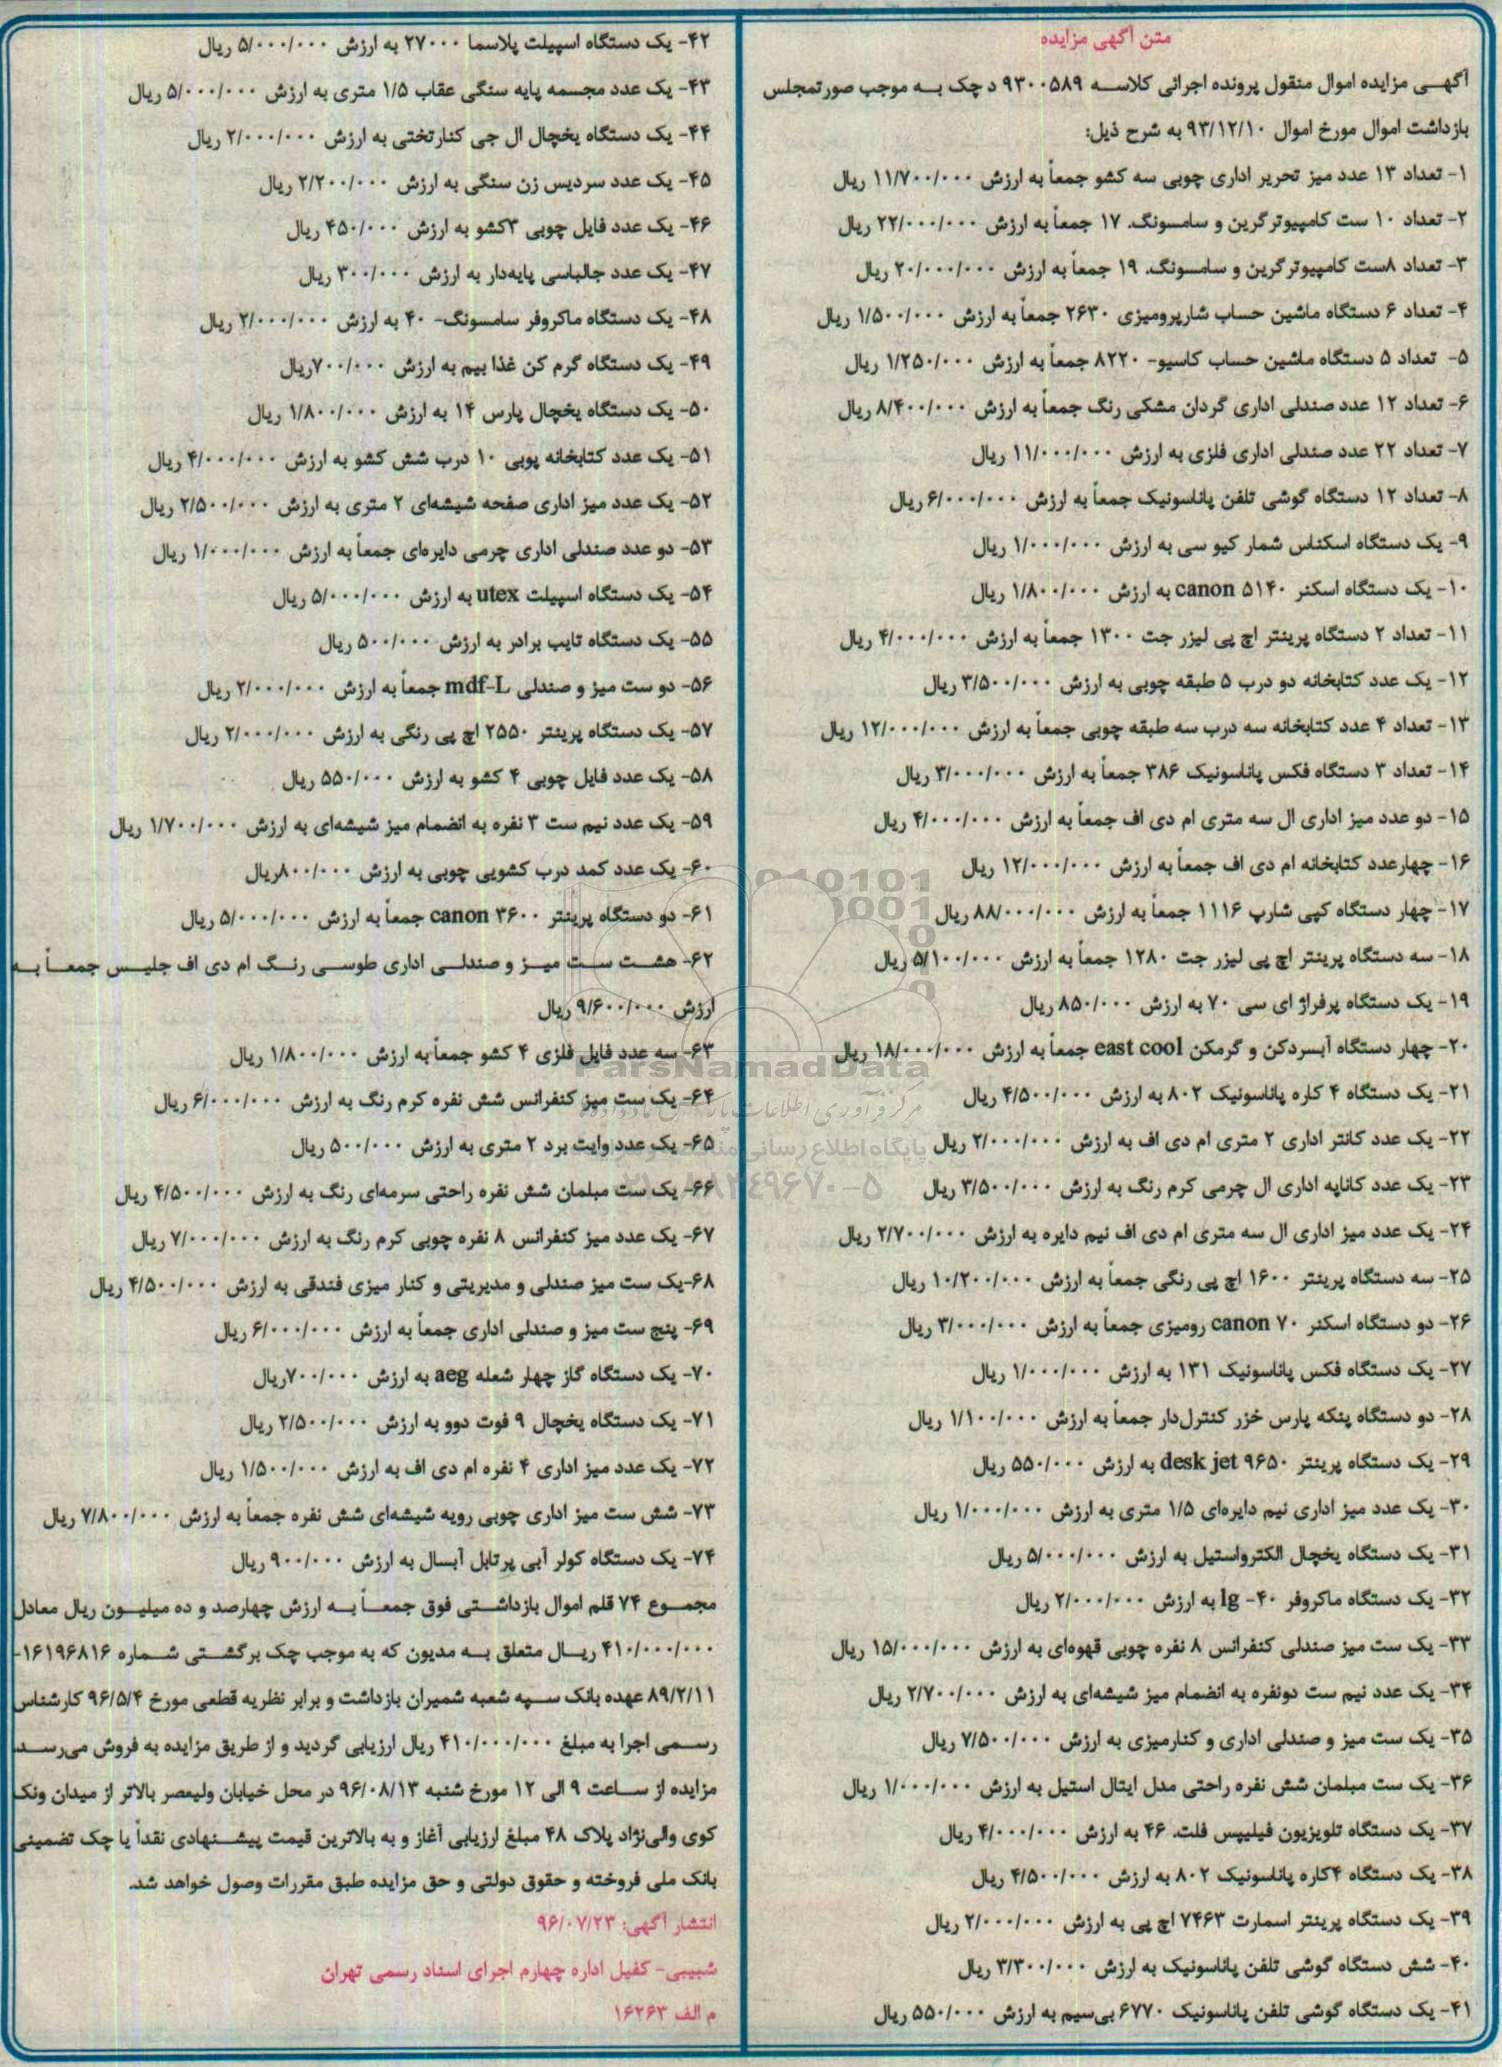 متن آگهی مزایده
آگهی مزایده اموال منقول پرونده اجرائی کلاسه ۹۳۰۰۵۸۹ د چک به موجب صورتمجلس
بازداشت اموال مورخ اموال ۹۳/۱۲/۱۰ به شرح ذیل:
۱- تعداد ۱۳ عدد میز تحریر اداری چوبی سه کشو جمعاً به ارزش ۱۱/۷۰۰/۰۰۰ ریال
۲- تعداد ۱۰ ست کامپیوتر گرین و سامسونگ. ۱۷ جمعاً به ارزش ۲۲/۰۰۰/۰۰۰ ریال
۳- تعداد ۸ست کامپیوتر گرین و سامسونگ. ۱۹ جمعاً به ارزش ۲۰/۰۰۰/۰۰۰ ریال
۴- تعداد ۶ دستگاه ماشین حساب شارپ‌رومیزی ۲۶۳۰ جمعاً به ارزش ۱/۵۰۰/۰۰۰ ریال
۵- تعداد ۵ دستگاه ماشین حساب کاسیو- ۸۲۲۰ جمعاً به ارزش ۱/۲۵۰/۰۰۰ ریال
۶- تعداد ۱۲ عدد صندلی اداری گردان مشکی رنگ جمعاً به ارزش ۸/۴۰۰/۰۰۰ ریال
۷- تعداد ۲۲ عدد صندلی اداری فلزی به ارزش ۱۱/۰۰۰/۰۰۰ ریال
۸- تعداد ۱۲ دستگاه گوشی تلفن پاناسونیک جمعاً به ارزش ۶/۰۰۰/۰۰۰ ریال
۹- یک دستگاه اسکناس شمار کیو سی به ارزش ۱/۰۰۰/۰۰۰ ریال
۱۰- یک دستگاه اسکنر ۵۱۴۰ canon به ارزش ۱/۸۰۰/۰۰۰ ریال
۱۱- تعداد ۲ دستگاه پرینتر اچ پی لیزر جت ۱۳۰۰ جمعاً به ارزش ۴/۰۰۰/۰۰۰ ریال
۱۲- یک عدد کتابخانه دو درب ۵ طبقه چوبی به ارزش ۳/۵۰۰/۰۰۰ ریال
۱۳- تعداد ۴ عدد کتابخانه سه درب سه طبقه چوبی جمعاً به ارزش ۱۲/۰۰۰/۰۰۰ ریال
۱۴- تعداد ۳ دستگاه فکس پاناسونیک ۳۸۶ جمعاً به ارزش ۳/۰۰۰/۰۰۰ ریال
۱۵- دو عدد میز اداری ال سه متری ام دی اف جمعاً به ارزش ۴/۰۰۰/۰۰۰ ریال
۱۶- چهارعدد کتابخانه ام دی اف جمعاً به ارزش ۱۲/۰۰۰/۰۰۰ ریال
۱۷- چهار دستگاه کپی شارپ ۱۱۱۶ جمعاً به ارزش ۸۸/۰۰۰/۰۰۰ ریال
۱۸- سه دستگاه پرینتر اچ پی لیزر جت ۱۲۸۰ جمعاً به ارزش ۵/۱۰۰/۰۰۰ ریال
۱۹- یک دستگاه پرفراژ ای سی ۷۰ به ارزش ۸۵۰/۰۰۰ ریال
۲۰- چهار دستگاه آبسردکن و گرمکن east cool جمعاً به ارزش ۱۸/۰۰۰/۰۰۰ ریال
۲۱- یک دستگاه ۴ کاره پاناسونیک ۸۰۲ به ارزش ۴/۵۰۰/۰۰۰ ریال
۲۲- یک عدد کانتر اداری ۲ متری ام دی اف به ارزش ۲/۰۰۰/۰۰۰ ریال
۲۳- یک عدد کاناپه اداری ال چرمی کرم رنگ به ارزش ۳/۵۰۰/۰۰۰ ریال
۲۴- یک عدد میز اداری ال سه متری ام دی اف نیم دایره به ارزش ۲/۷۰۰/۰۰۰ ریال
۲۵- سه دستگاه پرینتر ۱۶۰۰ اچ پی رنگی جمعاً به ارزش ۱۰/۲۰۰/۰۰۰ ریال
۲۶- دو دستگاه اسکنر ۷۰ canon رومیزی جمعاً به ارزش ۳/۰۰۰/۰۰۰ ریال
۲۷- یک دستگاه فکس پاناسونیک ۱۳۱ به ارزش ۱/۰۰۰/۰۰۰ ریال
۲۸- دو دستگاه پنکه پارس خزر کنترل‌دار جمعاً به ارزش ۱/۱۰۰/۰۰۰ ریال
۲۹- یک دستگاه پرینتر ۹۶۵۰ desk jet به ارزش ۵۵۰/۰۰۰ ریال
۳۰- یک عدد میز اداری نیم دایره‌ای ۱/۵ متری به ارزش ۱/۰۰۰/۰۰۰ ریال
۳۱- یک دستگاه یخچال الکترواستیل به ارزش ۵/۰۰۰/۰۰۰ ریال
۳۲- یک دستگاه ماکروفر ۴۰- lg به ارزش ۲/۰۰۰/۰۰۰ ریال
۳۳- یک ست میز صندلی کنفرانس ۸ نفره چوبی قهوه‌ای به ارزش ۱۵/۰۰۰/۰۰۰ ریال
۳۴- یک عدد نیم ست دونفره به انضمام میز شیشه‌ای به ارزش ۲/۷۰۰/۰۰۰ ریال
۳۵- یک ست میز و صندلی اداری و کنارمیزی به ارزش ۷/۵۰۰/۰۰۰ ریال
۳۶- یک ست مبلمان شش نفره راحتی مدل ایتال استیل به ارزش ۱/۰۰۰/۰۰۰ ریال
۳۷- یک دستگاه تلویزیون فیلیپس فلت. ۴۶ به ارزش ۴/۰۰۰/۰۰۰ ریال
۳۸- یک دستگاه ۴کاره پاناسونیک ۸۰۲ به ارزش ۴/۵۰۰/۰۰۰ ریال
۳۹- یک دستگاه پرینتر اسمارت ۷۴۶۳ اچ پی به ارزش ۲/۰۰۰/۰۰۰ ریال
۴۰- شش دستگاه گوشی تلفن پاناسونیک به ارزش ۳/۳۰۰/۰۰۰ ریال
۴۱- یک دستگاه گوشی تلفن پاناسونیک ۶۷۷۰ بی‌سیم به ارزش ۵۵۰/۰۰۰ ریال
۴۲- یک دستگاه اسپیلت پلاسما ۲۷۰۰۰ به ارزش ۵/۰۰۰/۰۰۰ ریال
۴۳- یک عدد مجسمه پایه سنگی عقاب ۱/۵ متری به ارزش ۵/۰۰۰/۰۰۰ ریال
۴۴- یک دستگاه یخچال ال جی کنارتختی به ارزش ۲/۰۰۰/۰۰۰ ریال
۴۵- یک عدد سردیس زن سنگی به ارزش ۲/۲۰۰/۰۰۰ ریال
۴۶- یک عدد فایل چوبی ۳کشو به ارزش ۴۵۰/۰۰۰ ریال
۴۷- یک عدد جالباسی پایه‌دار به ارزش ۳۰۰/۰۰۰ ریال
۴۸- یک دستگاه ماکروفر سامسونگ- ۴۰ به ارزش ۲/۰۰۰/۰۰۰ ریال
۴۹- یک دستگاه گرم کن غذا بیم به ارزش ۷۰۰/۰۰۰ریال
۵۰- یک دستگاه یخچال پارس ۱۴ به ارزش ۱/۸۰۰/۰۰۰ ریال
۵۱- یک عدد کتابخانه پوبی ۱۰ درب شش کشو به ارزش ۴/۰۰۰/۰۰۰ ریال
۵۲- یک عدد میز اداری صفحه شیشه‌ای ۲ متری به ارزش ۲/۵۰۰/۰۰۰ ریال
۵۳- دو عدد صندلی اداری چرمی دایره‌ای جمعاً به ارزش ۱/۰۰۰/۰۰۰ ریال
۵۴- یک دستگاه اسپیلت utex به ارزش ۵/۰۰۰/۰۰۰ ریال
۵۵- یک دستگاه تایپ برادر به ارزش ۵۰۰/۰۰۰ ریال
۵۶- دو ست میز و صندلی mdf-L جمعاً به ارزش ۲/۰۰۰/۰۰۰ ریال
۵۷- یک دستگاه پرینتر ۲۵۵۰ اچ پی رنگی به ارزش ۲/۰۰۰/۰۰۰ ریال
۵۸- یک عدد فایل چوبی ۴ کشو به ارزش ۵۵۰/۰۰۰ ریال
۵۹- یک عدد نیم ست ۳ نفره به انضمام میز شیشه‌ای به ارزش ۱/۷۰۰/۰۰۰ ریال
۶۰- یک عدد کمد درب کشویی چوبی به ارزش ۸۰۰/۰۰۰ریال
۶۱- دو دستگاه پرینتر ۳۶۰۰ canon جمعاً به ارزش ۵/۰۰۰/۰۰۰ ریال
۶۲- هشت ست میز و صندلی اداری طوسی رنگ ام دی اف جلیس جمعاً به
ارزش ۹/۶۰۰/۰۰۰ ریال
۶۳- سه عدد فایل فلزی ۴ کشو جمعاً به ارزش ۱/۸۰۰/۰۰۰ ریال
۶۴- یک ست میز کنفرانس شش نفره کرم رنگ به ارزش ۶/۰۰۰/۰۰۰ ریال
۶۵- یک عدد وایت برد ۲ متری به ارزش ۵۰۰/۰۰۰ ریال
۶۶- یک ست مبلمان شش نفره راحتی سرمه‌ای رنگ به ارزش ۴/۵۰۰/۰۰۰ ریال
۶۷- یک عدد میز کنفرانس ۸ نفره چوبی کرم رنگ به ارزش ۷/۰۰۰/۰۰۰ ریال
۶۸-یک ست میز صندلی و مدیریتی و کنار میزی فندقی به ارزش ۴/۵۰۰/۰۰۰ ریال
۶۹- پنج ست میز و صندلی اداری جمعاً به ارزش ۶/۰۰۰/۰۰۰ ریال
۷۰- یک دستگاه گاز چهار شعله aeg به ارزش ۷۰۰/۰۰۰ریال
۷۱- یک دستگاه یخچال ۹ فوت دوو به ارزش ۲/۵۰۰/۰۰۰ ریال
۷۲- یک عدد میز اداری ۴ نفره ام دی اف به ارزش ۱/۵۰۰/۰۰۰ ریال
۷۳- شش ست میز اداری چوبی رویه شیشه‌ای شش نفره جمعاً به ارزش ۷/۸۰۰/۰۰۰ ریال
۷۴- یک دستگاه کولر آبی پرتابل آبسال به ارزش ۹۰۰/۰۰۰ ریال
مجموع ۷۴ قلم اموال بازداشتی فوق جمعاً به ارزش چهارصد و ده میلیون ریال معادل
۴۱۰/۰۰۰/۰۰۰ ریال متعلق به مدیون که به موجب چک برگشتی شماره ۱۶۱۹۶۸۱۶-
۸۹/۲/۱۱ عهده بانک سپه شعبه شمیران بازداشت و برابر نظریه قطعی مورخ ۹۶/۵/۴ کارشناس
رسمی اجرا به مبلغ ۴۱۰/۰۰۰/۰۰۰ ریال ارزیابی گردید و از طریق مزایده به فروش می‌رسد.
مزایده از ساعت ۹ الی ۱۲ مورخ شنبه ۹۶/۰۸/۱۳ در محل خیابان ولیعصر بالاتر از میدان ونک
کوی والی‌نژاد پلاک ۴۸ مبلغ ارزیابی آغاز و به بالاترین قیمت پیشنهادی نقداً یا چک تضمینی
بانک ملی فروخته و حقوق دولتی و حق مزایده طبق مقررات وصول خواهد شد.
انتشار آگهی: ۹۶/۰۷/۲۳
شبیبی- کفیل اداره چهارم اجرای اسناد رسمی تهران
م الف ۱۶۲۶۳
ParsNamadData